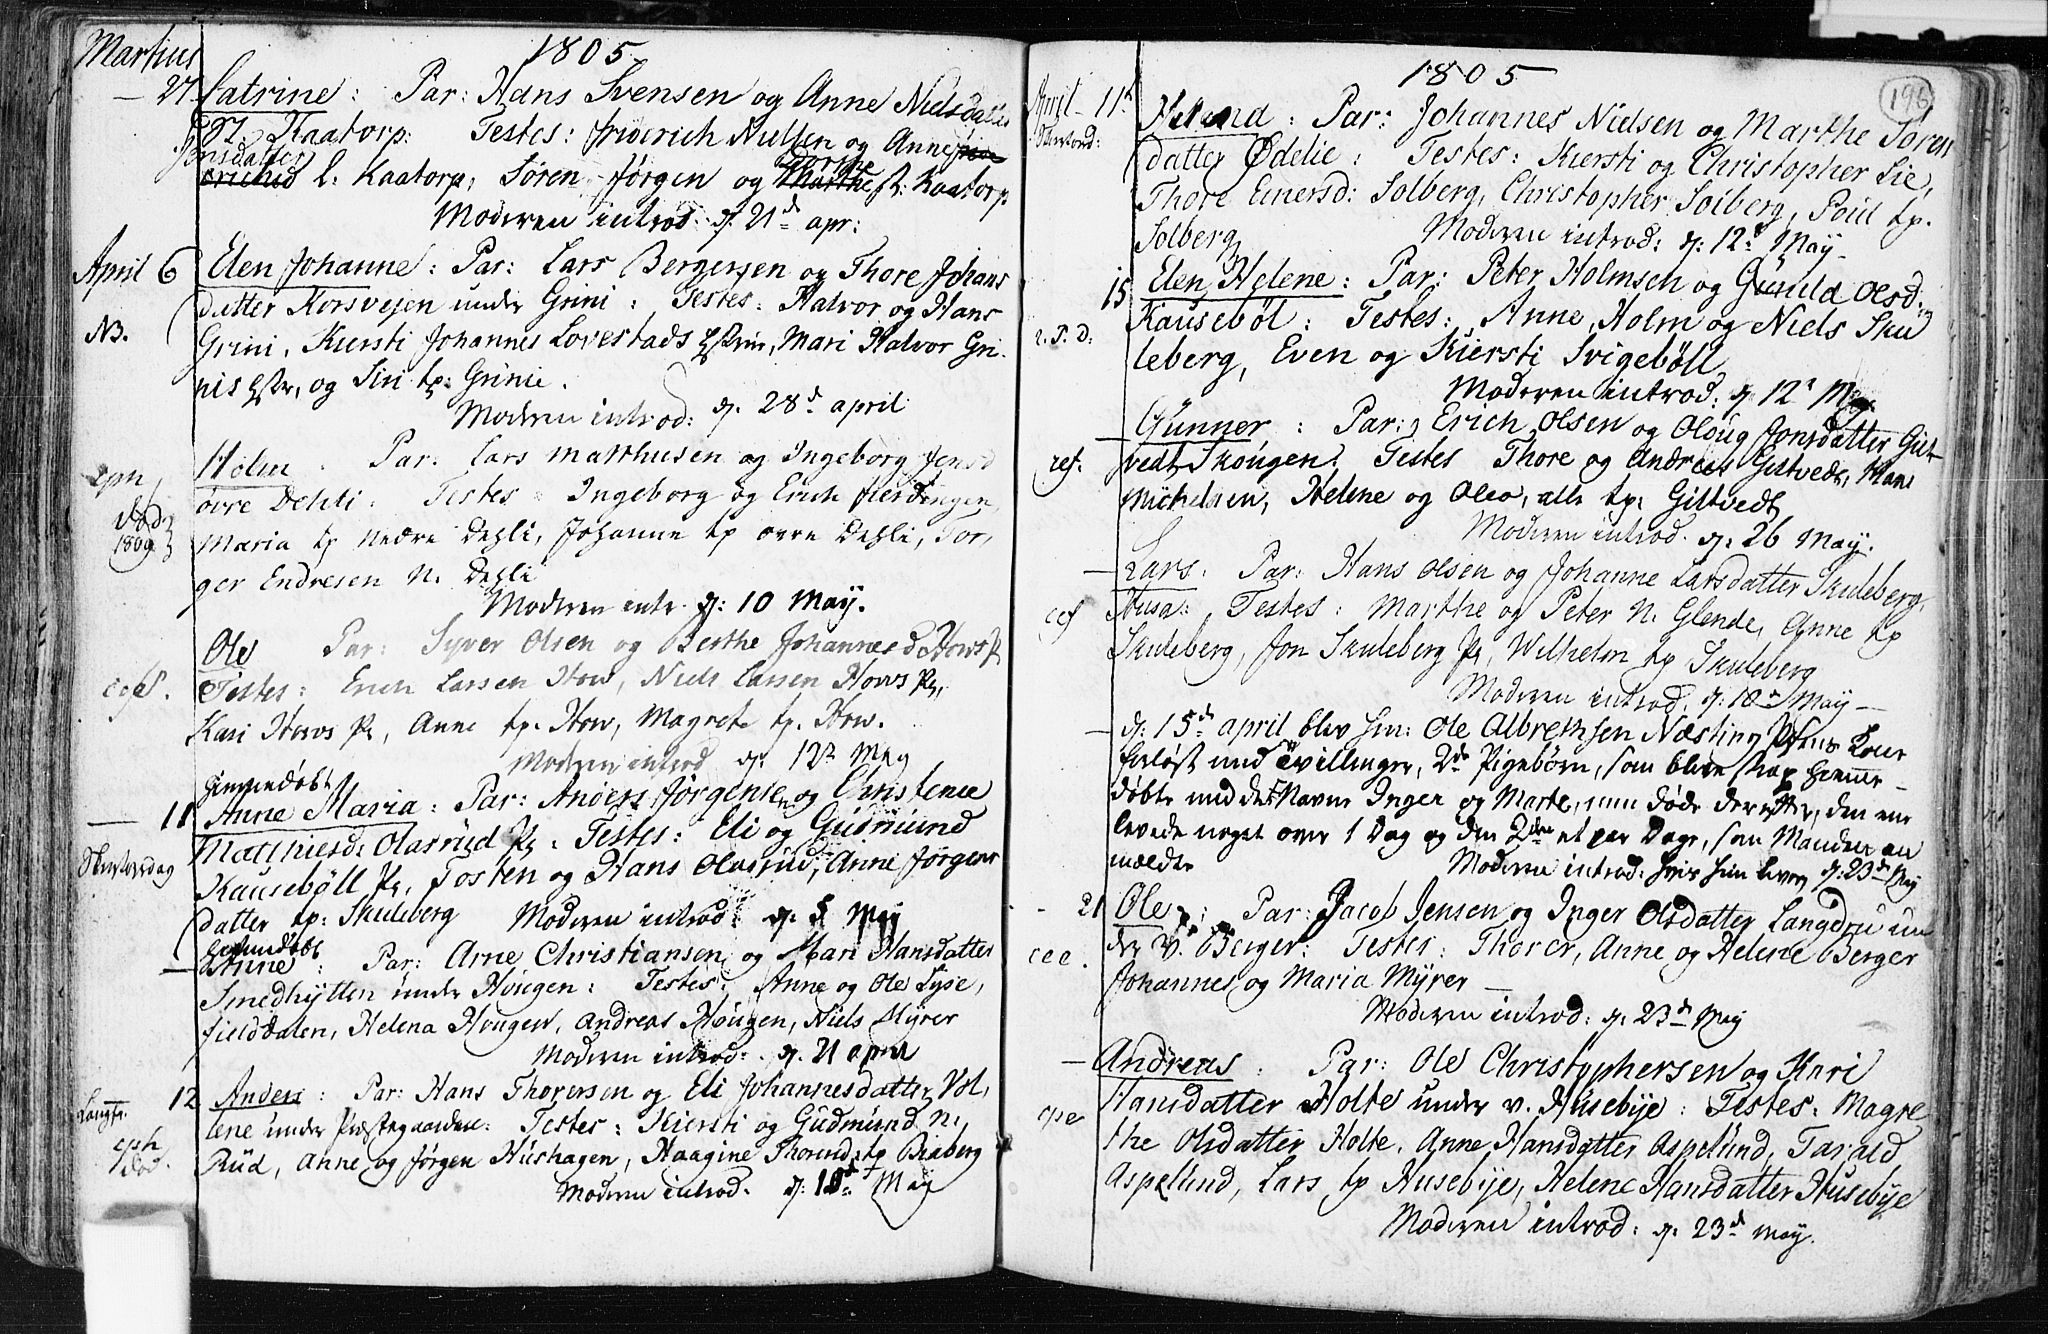 Martius
1805.
— 27 Catrine: Par: Hans Svensen og Anne Nielsdatter
St. Kaatorp: Testes: friderich Nielsen og Anne
Jensdatter l: Kaatorp, Søren Jørgen og Dorthe St: Kaatorp
Moderen introd: d. 21d apr:
April 6 Elen Johanne: Par: Lars Bergersen og Thore Johans
datter Korsvejen under Grini: Testes: Halvor og Hans
NB. Grini, Kiersti Johannes Lovestads, Mari Halvor Gri-
nis, og Siri tp: Grinie.
Moderen introd: d. 28d april
Holm Par: Lars Matthiesen og Ingeborg Jensd
øvre Dehli: Testes: Ingeborg og Erich fierdingen,
død 1809 Maria tp nedre Dehli, Johanne tp øvre Dehli, Tor,
ger Endresen N. Dehli
Moderen intr. d: 10 May.
Ole Par: Syver Olsen og Berthe Johannesd Hows Pl
Testes: Erich Larsen How, Niels Larsen Hows Pl,
Kari Hows Pl, Anne tp. How, Magrete tp. How.
Moderen introd d. 12d May
Hjemmedøbt
— 11 Anne Maria: Par: Anders Jørgensen og Christence
Matthiesd: Olasrud Pl: Testes: Eli og Gudmund
Skiertorsdag Kausebøll Pl, Tosten og Hans Olasrud, Anne Jørgens
datter tp: Skuleberg Moderen introd: d. 5 May
Hjemmedøbt
— Anne: Par: Arne Christiansen og Mari Hansdatter
Smedhytten under Hougen: Testes: Anne og Ole Lyse,
fielddalen, Helena Hougen, Andreas Hougen, Niels Myrer
Moderen introd: d. 21 april
Langfr. 12 Anders: Par: Hans Thorersen og Eli Johannesdatter Vol,
lene under Præstegaarden: Testes: Kiersti og Gudmund N.
Rud, Anne og Jørgen Hushagen, Haagine Thorersd tp Braberg
Moderen introd. d: 10d May
1805
196
April 11d Helena: Par: Johannes Nielsen og Marthe Søren
datter Ødelie: Testes: Kiersti og Christopher Lie,
Thore Einersd: Solberg, Christopher Solberg, Poul tp.
Solberg Moderen introd: d: 12d May
15 Elen Helene: Par: Peter Holmsen og Gunild Olsd:
Kausebøl: Testes: Anne Holm og Niels Sku
leberg, Even og Kiersti Svigebøll
Moderen introd: d 12d May
— Gunner: Par: Erich Olsen og Oloug Jonsdatter Gilt
vedt Skougen: Testes Thore og Andreas Giltvedt, Hans
Michelsen, Helene og Oleo, alle tp: Giltvedt
Moderen introd. d: 26 May.
— Lars: Par: Hans Olsen og Johanne Larsdatter Skuleberg,
Husa: Testes: Marthe og Peter N. Glende, Anne tp
Skuleberg, Jon Skuleberg Pl, Wilhelm tp Skuleberg
Moderen introd. d: 10d May
— d: 15d april blev hm: Ole Albrethsen Næsting Pl hans Kone
forløst med Tvillinger, 2de Pigebørn, som bleve strax hiemme-
døbte med det Navne Inger og Marte, men døde derefter, den ene
levede noget over 1 Dag og den 2den et par Dage, som Manden an
mældte Moderen introd: hvis hun lever, d: 23d May
21 Ole: Par: Jacob Jensen og Inger Olsdatter Langdru un
der v. Berger: Testes: Thorer, Anne og Helene Berger
Johannes og Maria Myrer —
Moderen introd: d. 23d May
— Andreas: Par: Ole Christophersen og Kari
Hansdatter Holte under v. Husebye: Testes: Magre
the Olsdatter Holte, Anne Hansdatter Aspelund, Tarald
Aspelund, Lars tp Husebye, Helene Hansdatter Husebye
Moderen introd: d. 23d May.